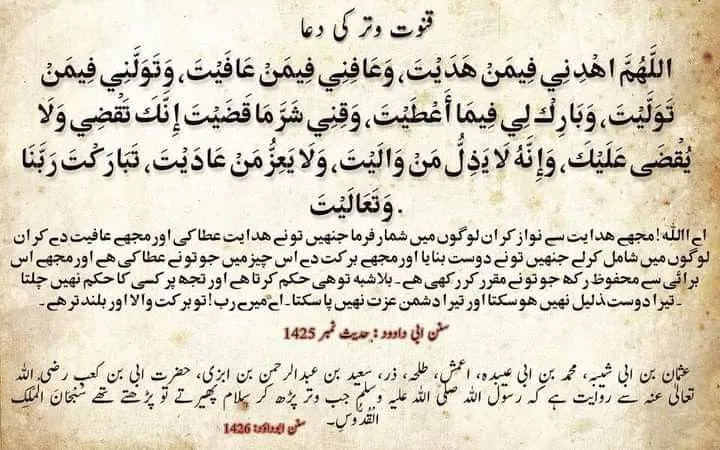 قنوت وتر کی دعا
اللَّهُمَّ اهْدِنِي فِيمَنْ هَدَيْتَ، وَعَافِنِي فِيمَنْ عَافَيْتَ، وَتَوَلَّنِي فِيمَنْ
تَوَلَّيْتَ، وَبَارِكْ لِي فِيمَا أَعْطَيْتَ، وَقِنِي شَرَّ مَا قَضَيْتَ إِنَّكَ تَقْضِي وَلَا
يُقْضَى عَلَيْكَ، وَإِنَّهُ لَا يَذِلُّ مَنْ وَالَيْتَ، وَلَا يَعِزُّ مَنْ عَادَيْتَ، تَبَارَكْتَ رَبَّنَا
وَتَعَالَيْتَ.
اے اللہ! مجھے ہدایت سے نواز کر ان لوگوں میں شمار فرما جنھیں تو نے ہدایت عطا کی اور مجھے عافیت دے کر ان
لوگوں میں شامل کرلے جنھیں تو نے دوست بنایا اور مجھے برکت دے اس چیز میں جو تو نے عطا کی ہے اور مجھے اس
برائی سے محفوظ رکھ جو تو نے مقرر کر رکھی ہے۔ بلاشبہ تو ہی حکم کرتا ہے اور تجھ پر کسی کا حکم نہیں چلتا
۔تیرا دوست ذلیل نہیں ہوسکتا اور تیرا دشمن عزت نہیں پا سکتا۔اے میرے رب! تو برکت والا اور بلند تر ہے۔
سنن ابی داوود : حدیث نمبر 1425
عثمان بن ابی شیبہ، محمد بن ابی عبیدہ، اعمش، طلحہ، ذر، سعید بن عبدالرحمن بن ابزی، حضرت ابی بن کعب رضی اللہ
تعالیٰ عنہ سے روایت ہے کہ رسول اللہ صلی اللہ علیہ وسلم جب وتر پڑھ کر سلام پھیرتے تو پڑھتے تھے سُبْحَانَ الْمَلِکِ
الْقُدُّوسِ۔
سنن ابوداؤد: 1426